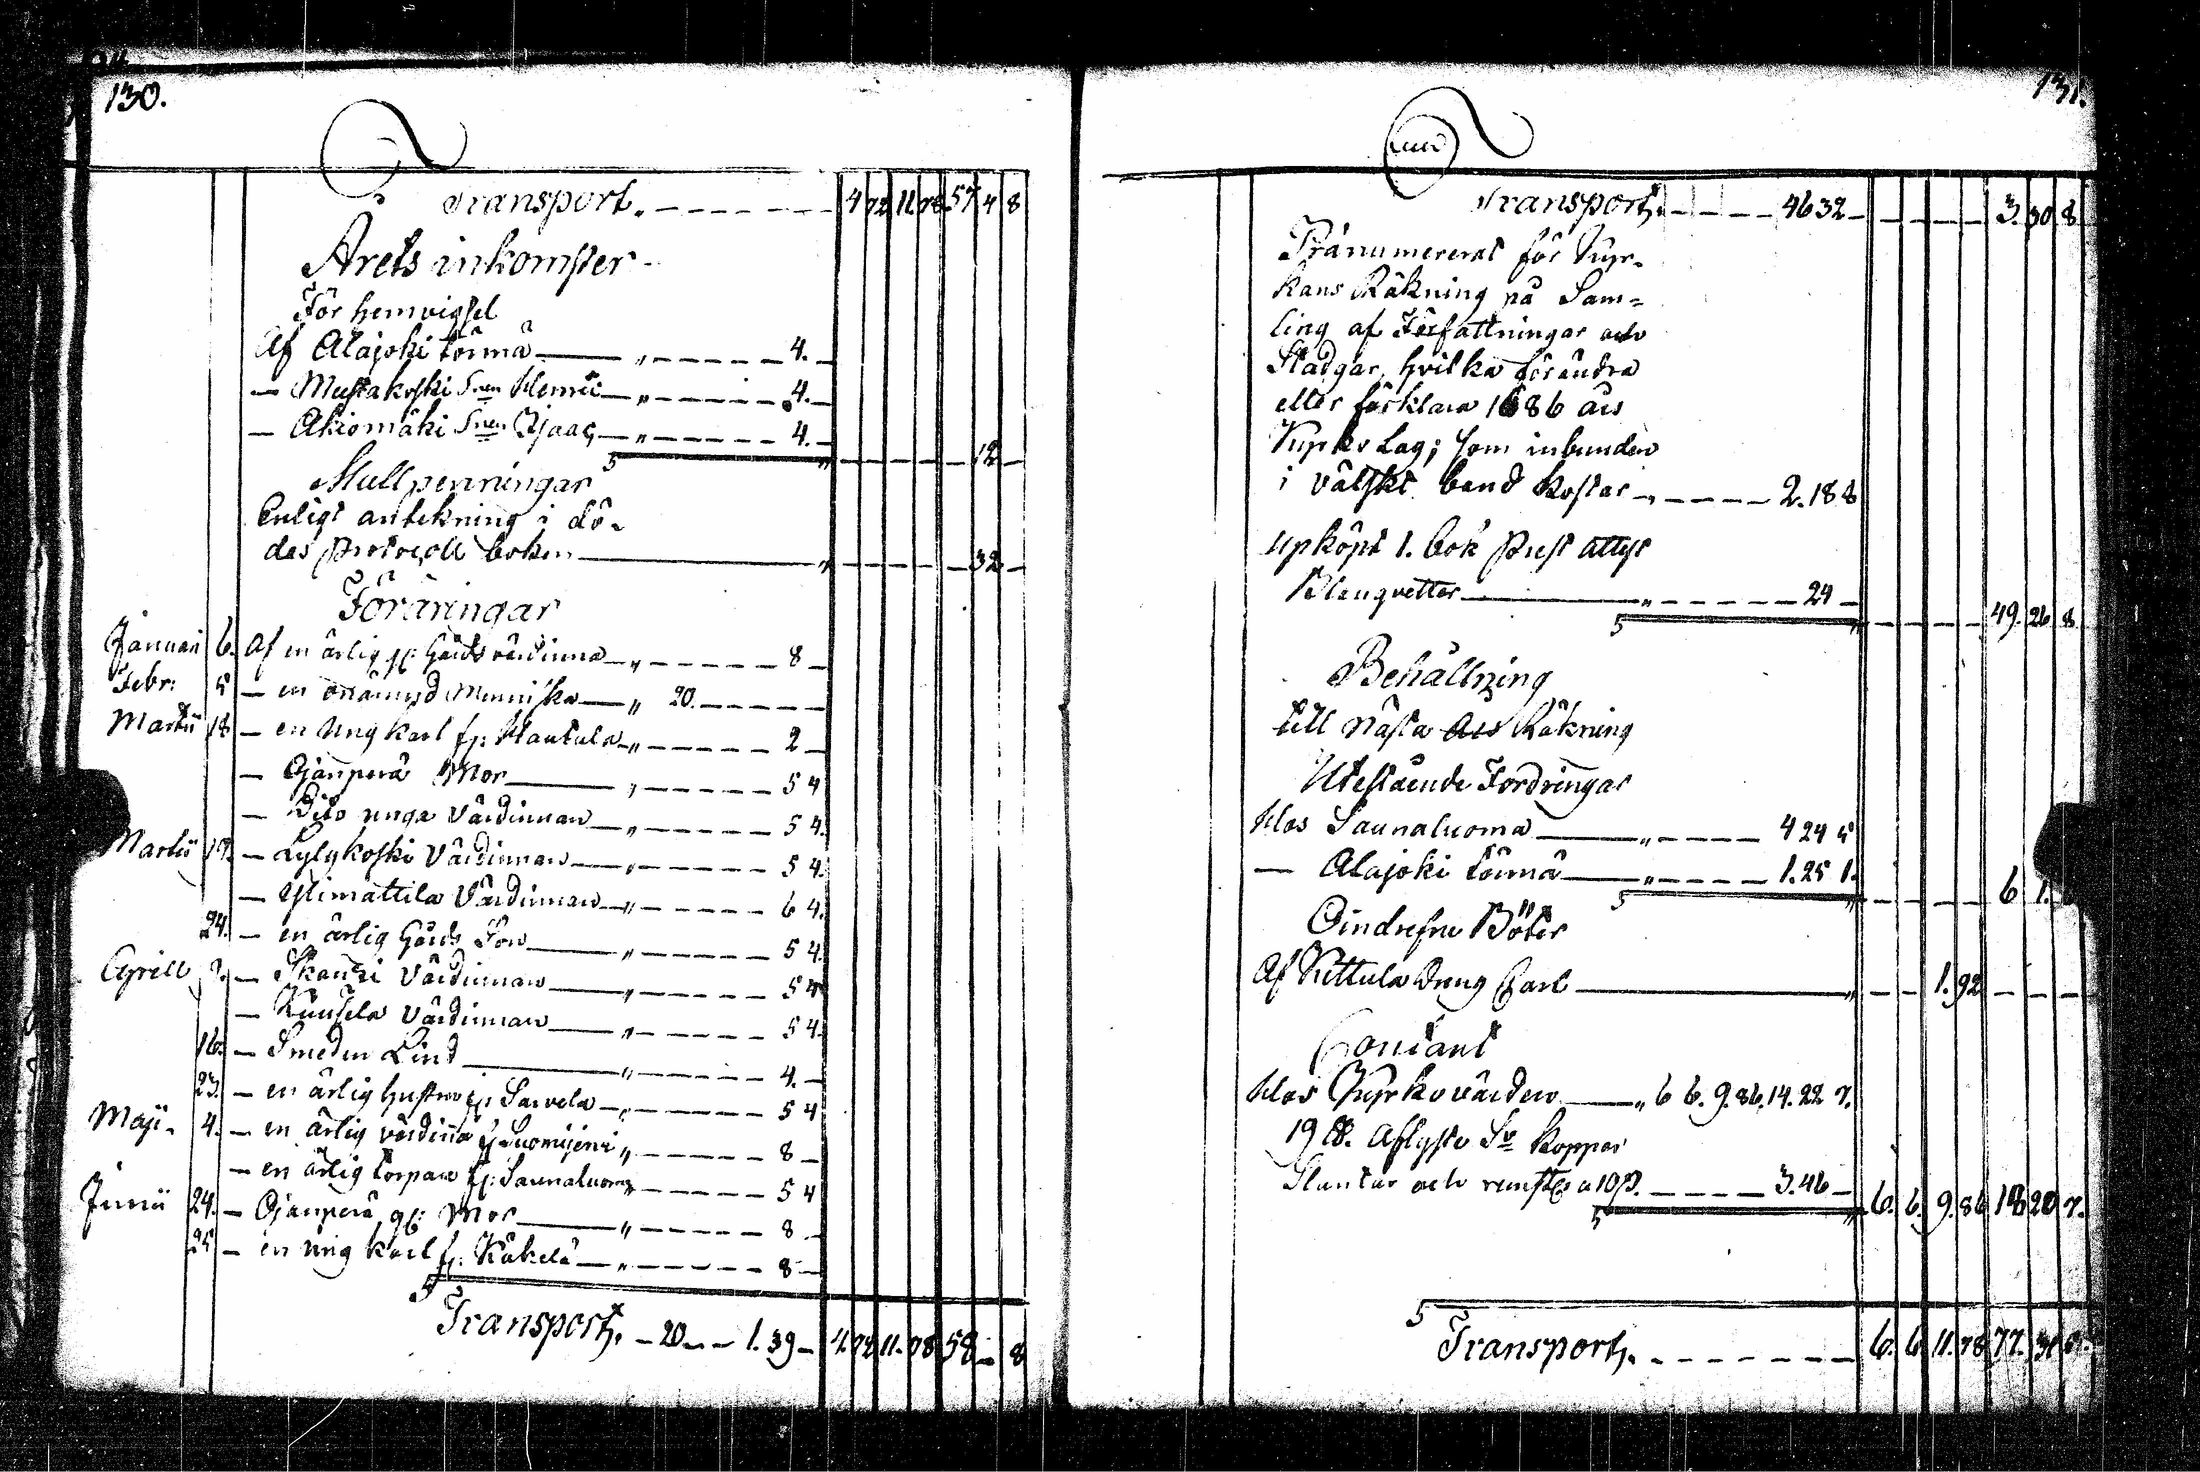 130.
Transport. 4 72 11 78 57 4 8
Årets inkomster
För hemvigsel
Af Alajoki Törmä " 4.
— Mustakoski Sven Henric " 4.
— Akiomäki Sven Isaac " 4.
S " 12
Mullpenningar
Enligt antekning i dö-
das protocoll boken " 32
Föräringar
Januari 6. Af en ärlig gl: Gårds värdinna " 8
Febr: 5 — en onämnd Menniska " 20.
Martii 18 — en Ung karl fr: Hautala " 2
— Ojanperä Mor " 5 4
— Dito unga Värdinnan " 5 4.
Martii 19. — Lylykoski Värdinnan " 5 4.
— Ylimattila Värdinnan " 6 4.
24. — en ärlig Gårds Son " 5 4.
Aprill — Skantzi Värdinnan " 5 4
— Kuusela Värdinnan " 5 4.
16. — Smeden Lind " 4.
23. — en ärlig hustru fr: Sarvela " 5 4
Maji. 4. — en ärlig värdinna fr: " 8
— en ärlig torpare fr: Saunaluoma " 5 4
Junii 24. — Ojanperä gl: Mor " 8
25 — en ung karl fr: Käkelä " 8
S
Transport. 20 1. 39 4. 72 11. 78 58 8
131.
Transport. 46 32 3. 30 8
Pränumererat för Kyr-
kans Räkning på Sam=
ling af Författningar och
Stadgar, hvilka förändra
eller förklara 1686 års
Kyrko Lag; som inbunden
i välskt band kostar " 2. 18 8
upköpt 1. bok Prest attest
Blanqvetter " 24
S " 49. 26 8
Behållning
till Nästa års Räkning
Utestående Fordringar
Hos Saunaluoma " 4 24 5
— Alajoki Törmä " 1. 25 1.
S " 6 1.
Oindrefne Böter
Af Kittula Dräng Carl " 1. 92
Contant
Hos Kyrkovärden " 6 6. 9. 86. 14. 22 7.
19 Aflyste Sv Koppar
Slantar och 3. 46
S " 6. 6. 9. 86 18 20 7.
S
Transport. 6. 6 11. 78 77.